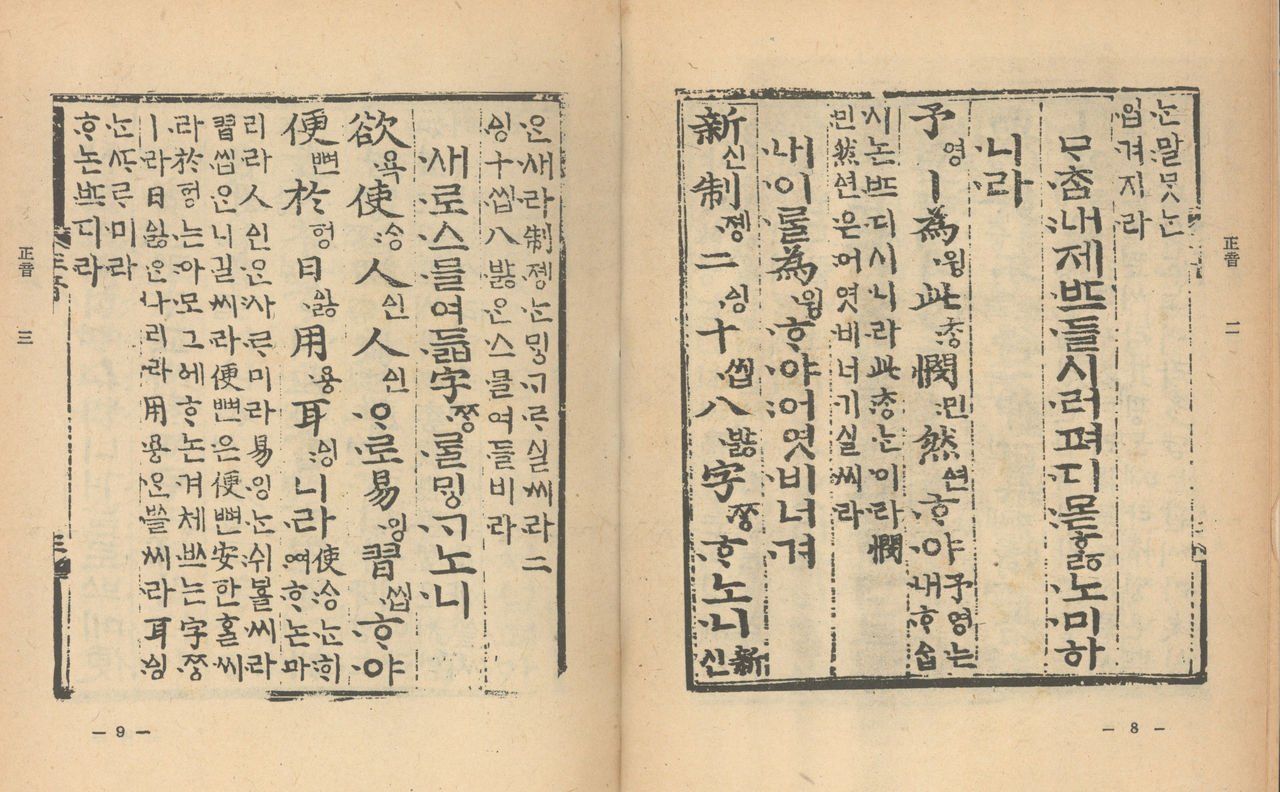 正音 二
ᄂᆞᆫ말ᄆᆞᆺᄂᆞᆫ
입겨지라
ᄆᆞᄎᆞᆷ내제ᄠᅳ들시러펴디몯ᄒᆞᇙ노미하
니라
予영ㅣ為윙此ᄎᆞᆼ憫민然ᅀᅧᆫᄒᆞ야予영는
내ᄒᆞᅀᆞᆸ
시논ᄠᅳ디시니라此ᄎᆞᆼᄂᆞᆫ이라憫
민然ᅀᅧᆫ은어엿비너기실씨라
내이ᄅᆞᆯ為윙ᄒᆞ야어엿비너겨
新신制졩二ᅀᅵᆼ十씹八바ᇙ字ᄍᆞᆼᄒᆞ노니新
신
— 8 —
은새라制졩ᄂᆞᆫᄆᆡᇰᄀᆞᄅᆞ실씨라二
ᅀᅵᆼ十씹八바ᇙ은스믈여들비라
새로스믈여듧字ᄍᆞᆼᄅᆞᆯᄆᆡᇰᄀᆞ노니
欲욕使ᄉᆞᆼ人ᅀᅵᆫ人ᅀᅵᆫᄋᆞ로易잉習씹ᄒᆞ야
便뼌於헝日ᅀᅵᇙ用용耳ᅀᅵᆼ니라使ᄉᆞᆼᄂᆞᆫᄒᆡ
여ᄒᆞ논마
리라人ᅀᅵᆫᄋᆞᆫ사ᄅᆞ미라易잉ᄂᆞᆫ쉬ᄫᅳᆯ씨라
習씹은니길씨라便뼌은便뼌安한ᄒᆞᆯ씨
라於헝는아모그에ᄒᆞ논겨체ᄡᅳ는字ᄍᆞᆼ
ㅣ라日ᅀᅵᇙ은나리라用용ᄋᆞᆫᄡᅳᆯ씨라耳ᅀᅵᆼ
ᄂᆞᆫᄯᆞᄅᆞ미라
ᄒᆞ논ᄠᅳ디라
正音 三
— 9 —